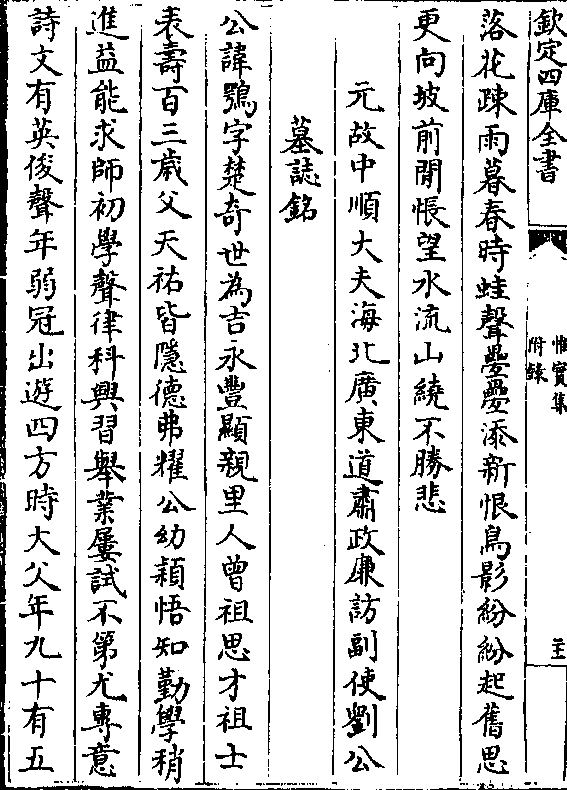 欽定四庫全書
惟實集
附録
主
落花疎雨暮春時蛙聲疊疊添新恨鳥影紛紛起舊思
更向坡前閒悵望水流山繞不勝悲
元故中順大夫海北廣東道肅政廉訪副使劉公
墓誌銘
公諱鶚字楚奇世為吉永豐顯親里人曾祖思才祖士
表壽百三歳父天祐皆隱德弗耀公幼穎悟知勤學稍
進益能求師初學聲律科興習舉業屢試不第尤專意
詩文有英俊聲年弱冠出遊四方時大父年九十有五